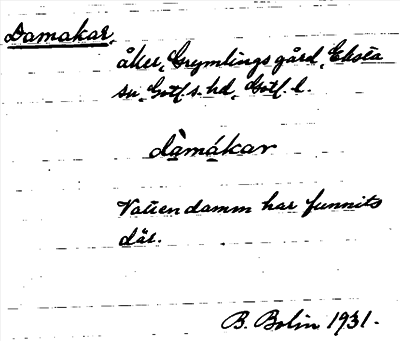 Damakar
åker, Grymlings gård, Eksta
sn, Gotl. s. hd, Gotl. l.
dàmákar
Vattendamm har funnits
där.
B. Bolin 1931.